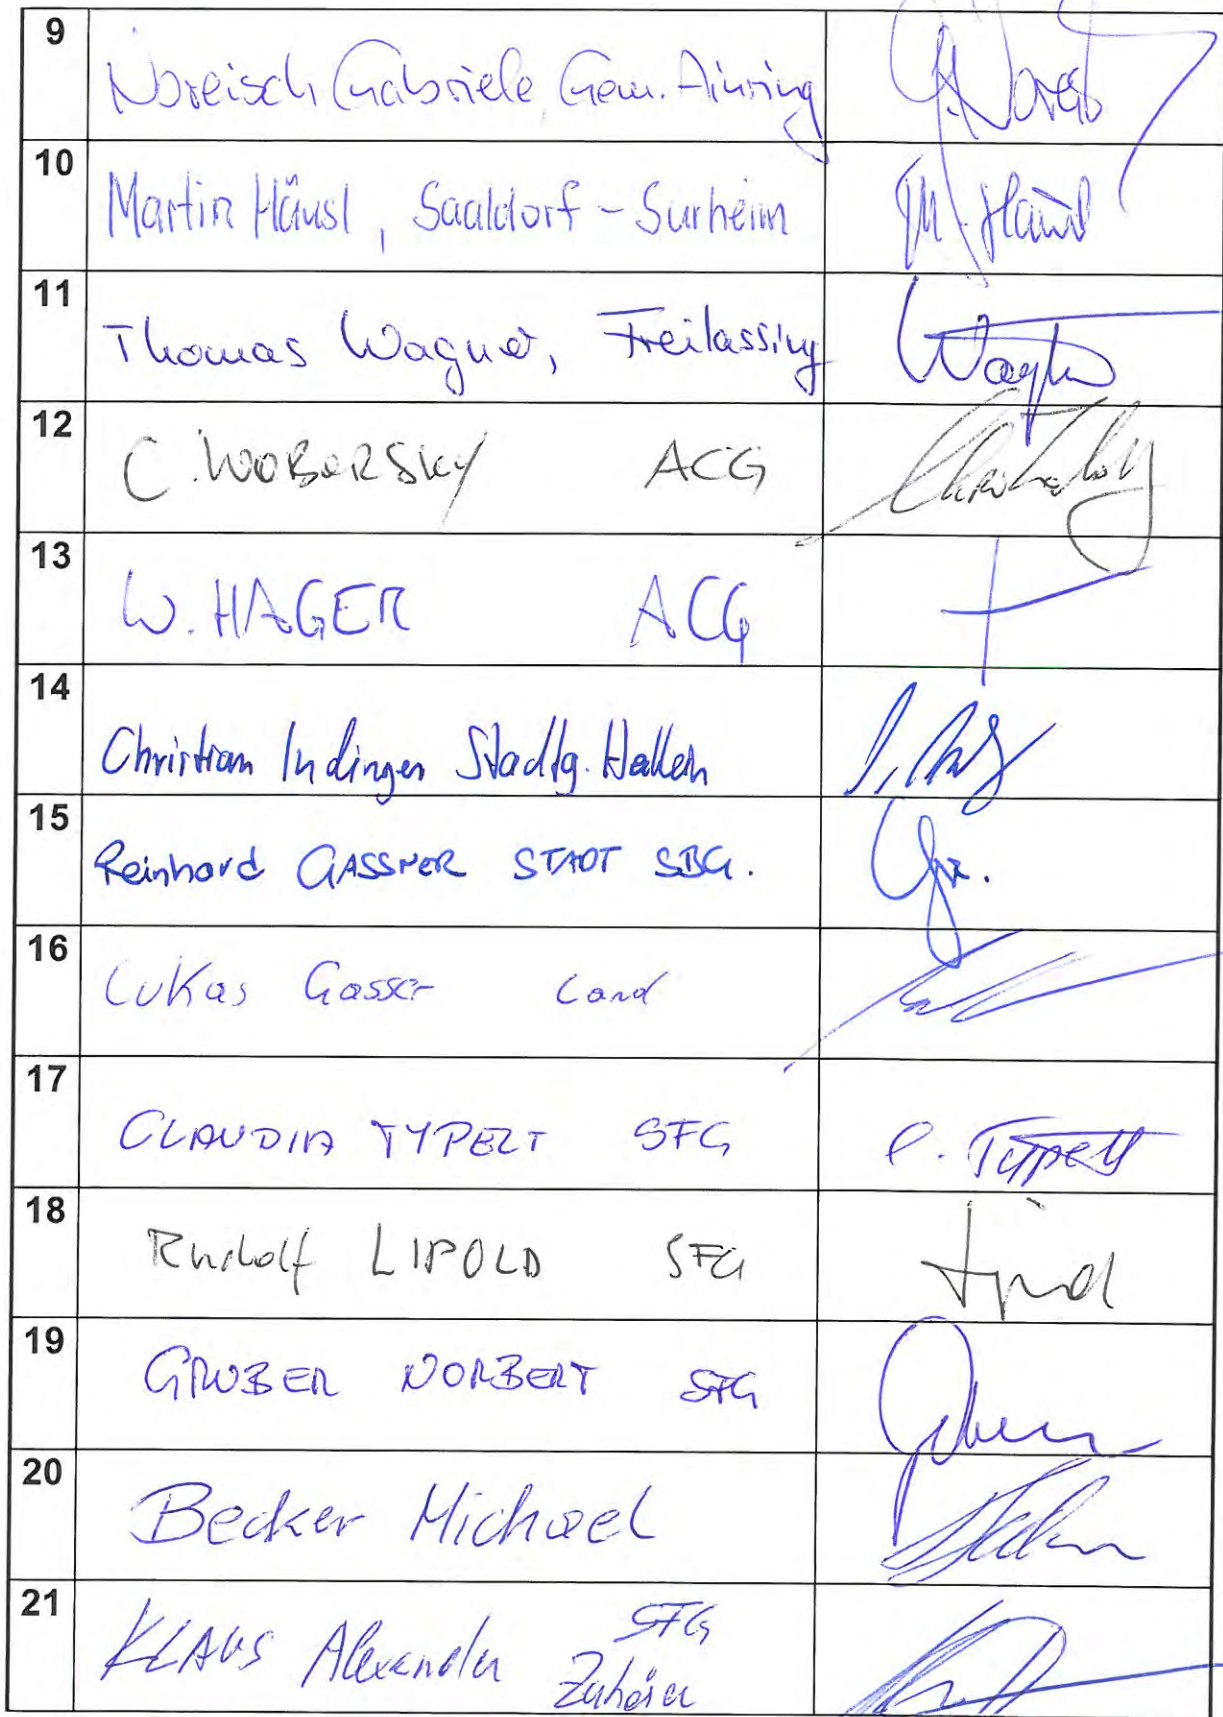 9 Noreisch Gabriele, Gem. Ainring
10 Martin Häusl, Saaldorf-Surheim M. Häusl
11 Thomas Wagner, Freilassing Wagner
12 C. WOBORSKY ACG
13 W. HAGER ACG
14 Christian Indinger Stadtg. Hallein
15 Reinhard GASSNER STADT SBG.
16 Lukas Gasser Land
17 CLAUDIA TYPELT SFG C. Typelt
18 Rudolf LIPOLD SFG
19 GRUBER NORBERT SFG
20 Becker Michael
21 KLAUS Alexander SFG
Zuhörer